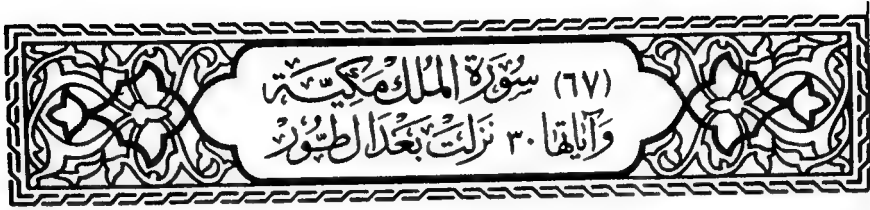 (٦٧) سُورَة المُلك مَكِيَّة
وَآيَاتهَا ٣٠ نَزلَتْ بَعْدَ الطّور